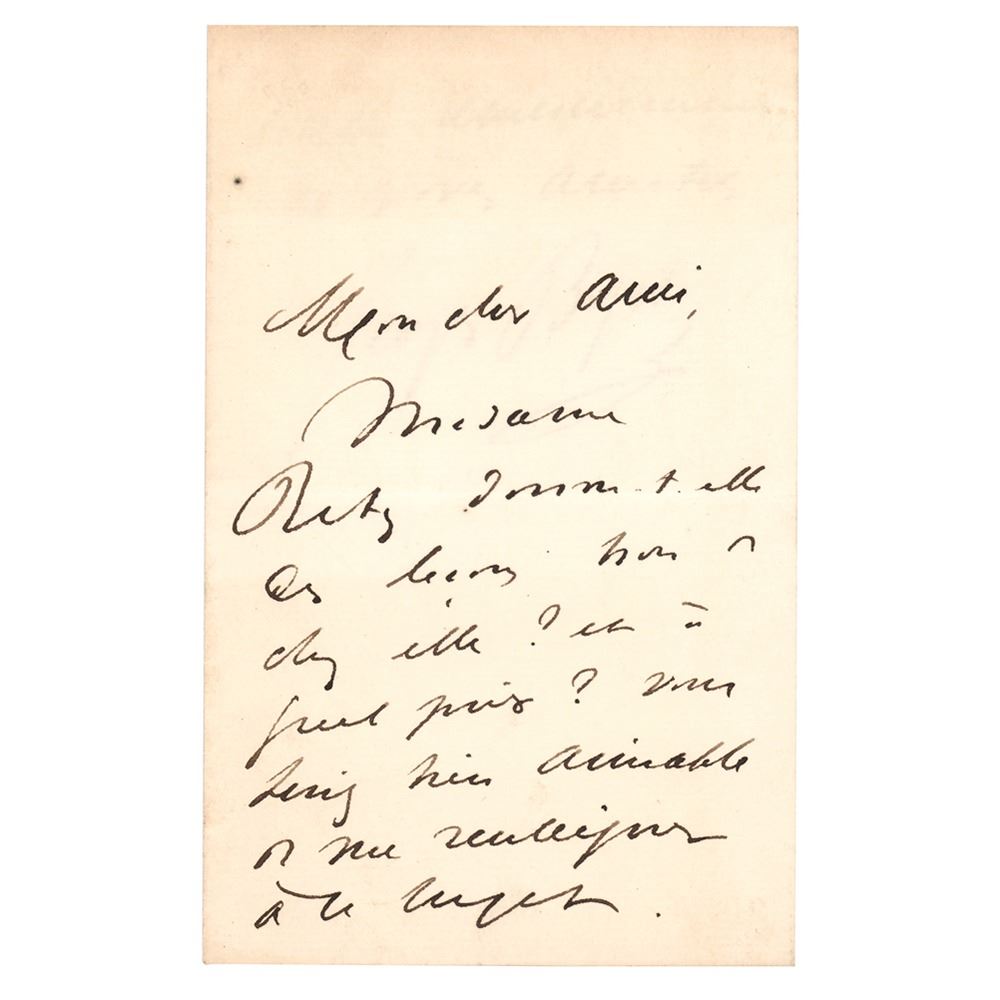 Mon cher ami,
Madame
Rety donne-t-elle
des leçons hors de
chez elle ? et à
quel prix ? vous
seriez bien aimable
de me renseigner
à ce sujet.